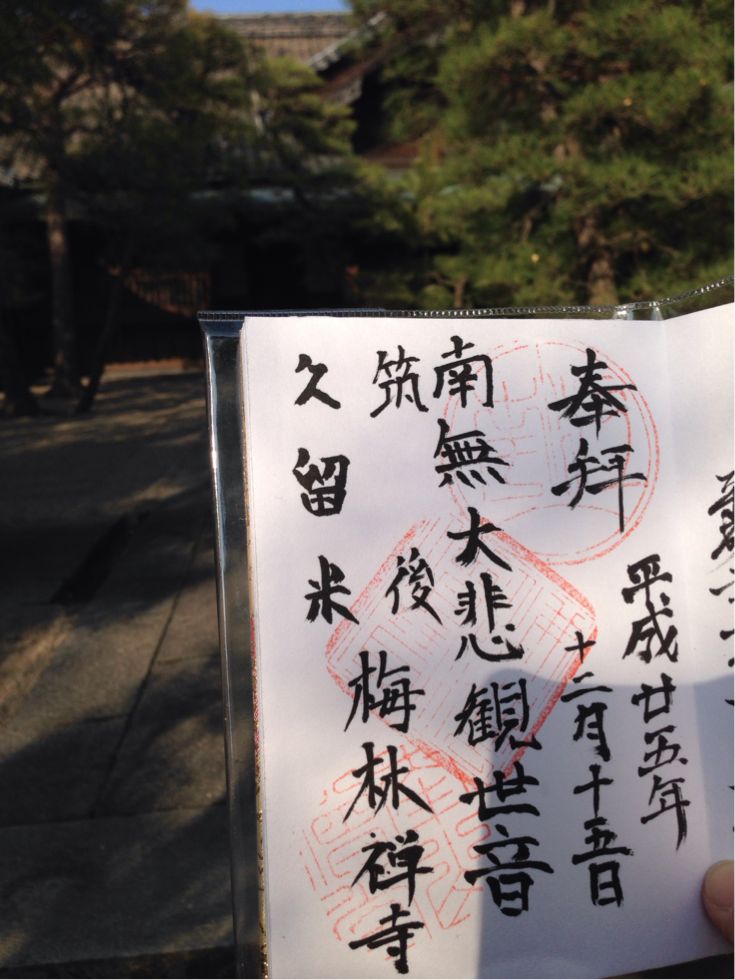 奉拝
平成廿五年
十二月十五日
南無大悲観世音
筑後
梅林禅寺
久留米